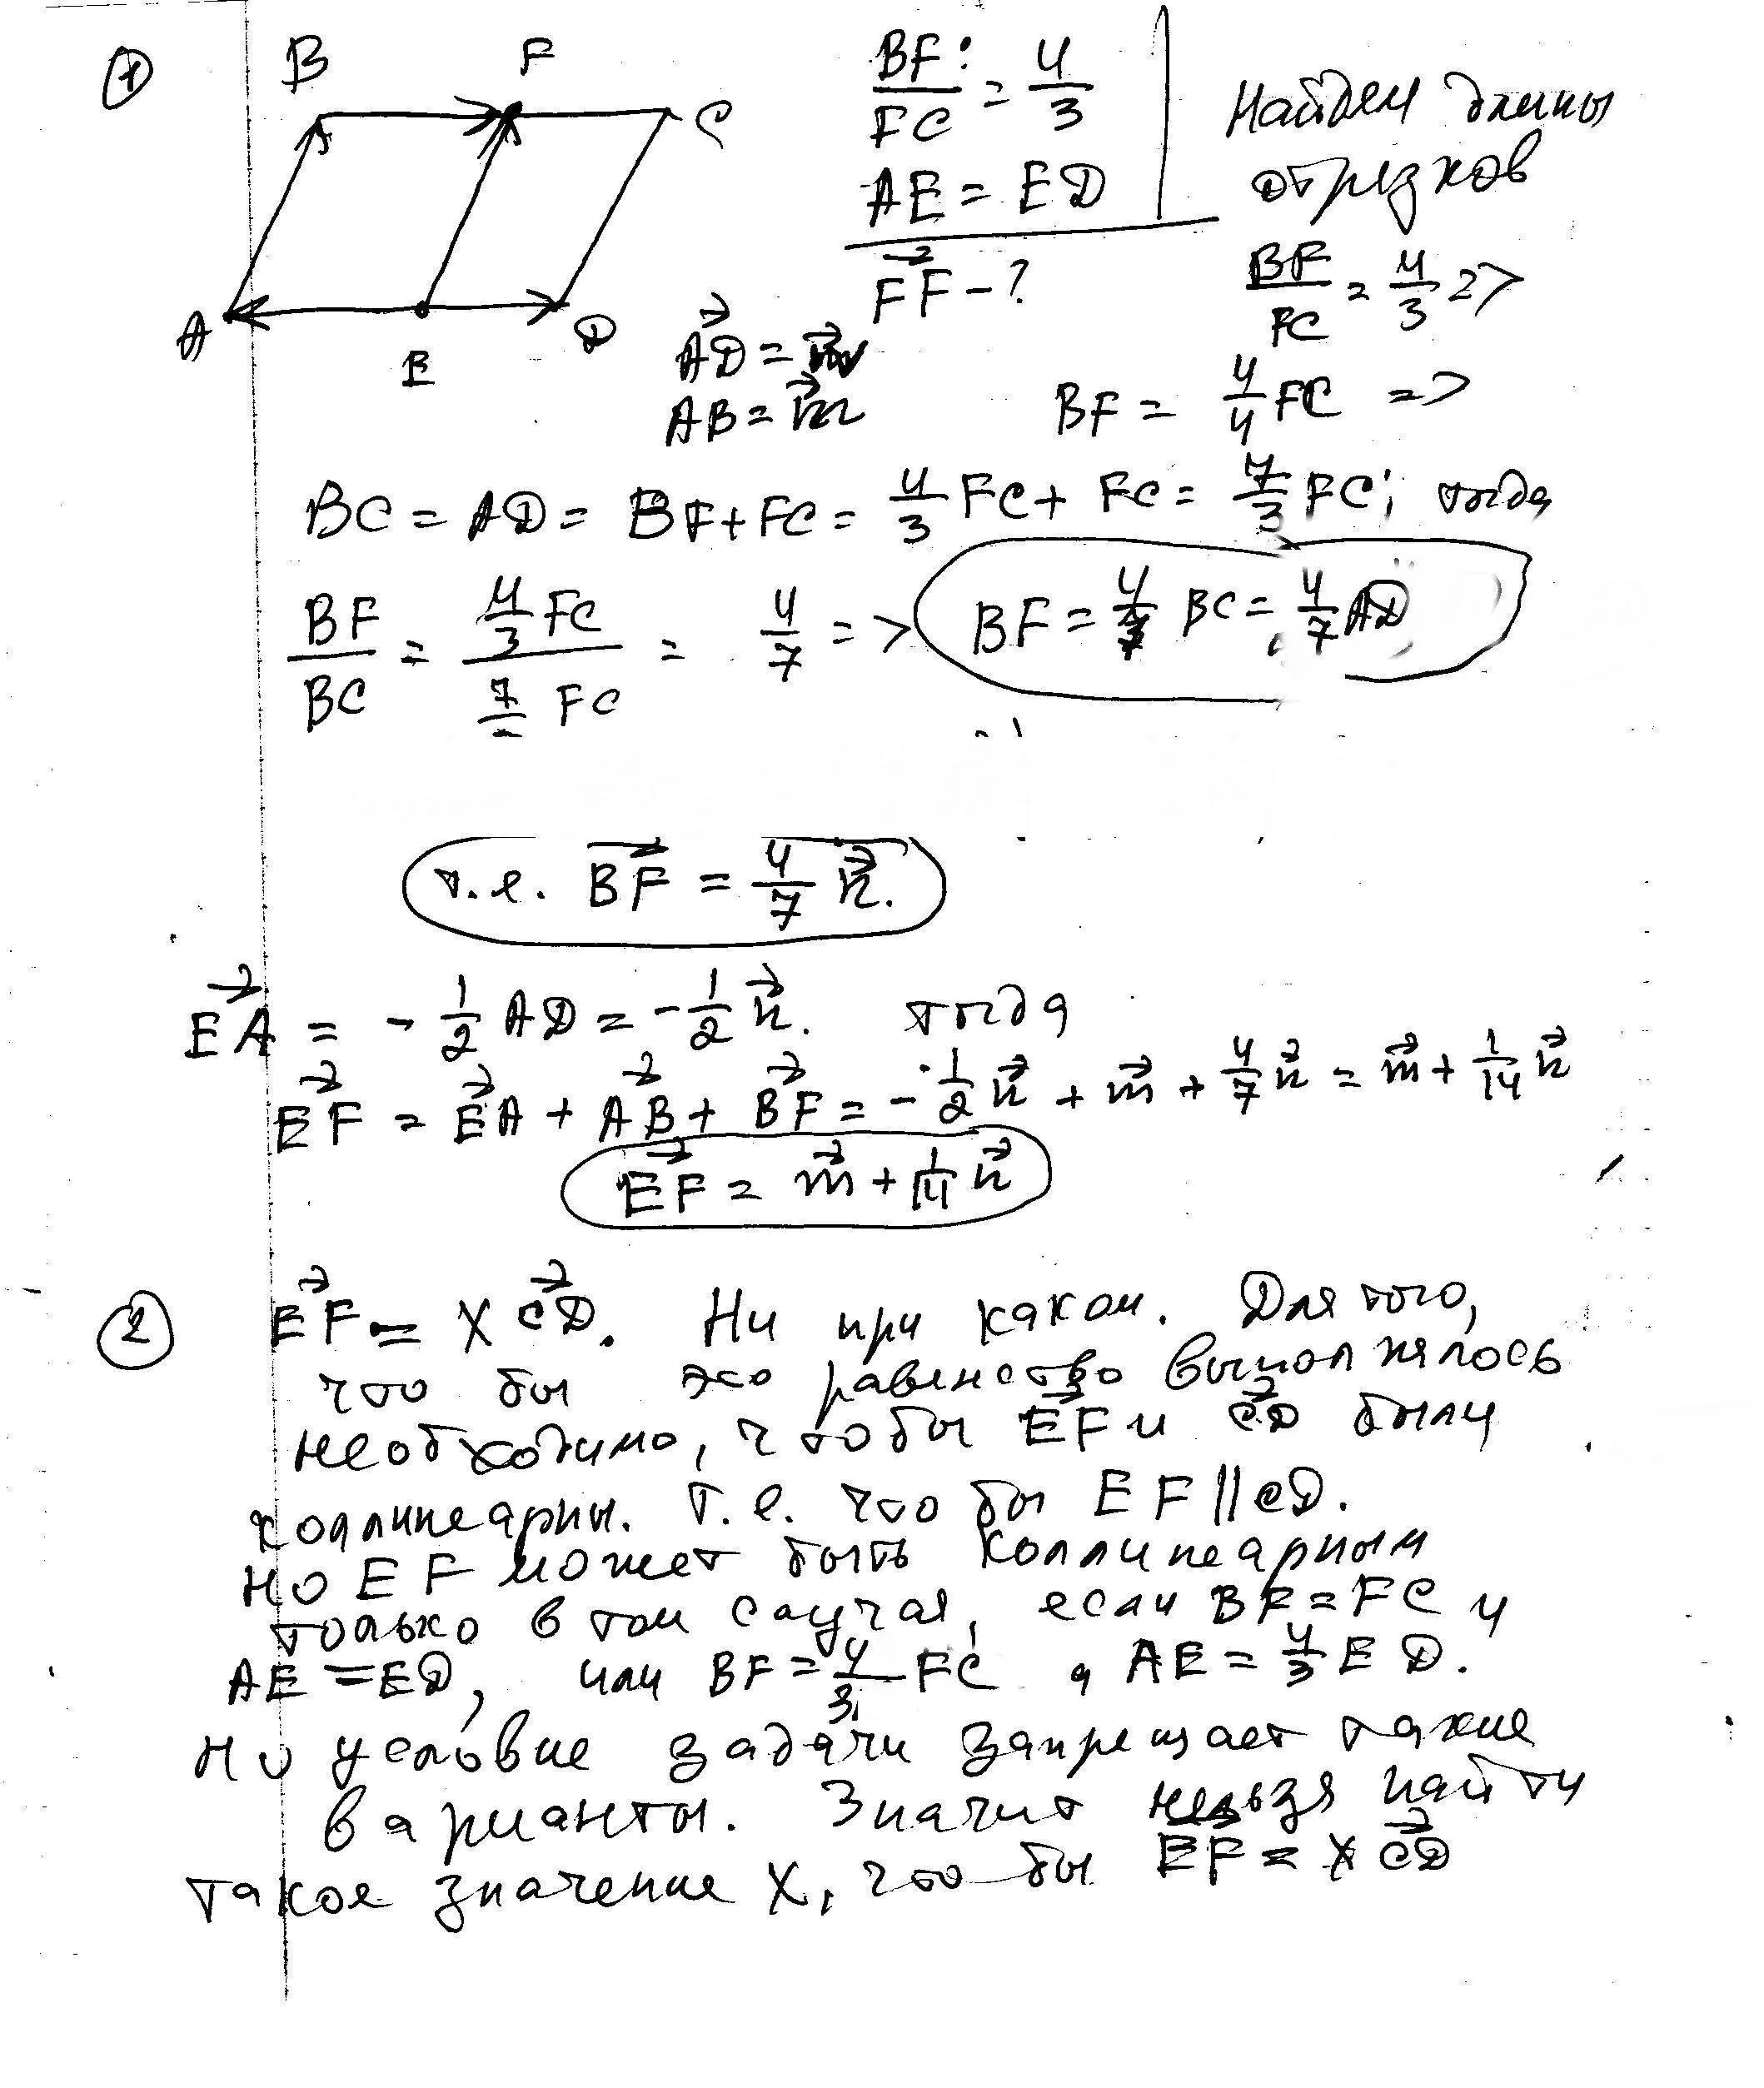 1
B F C
A E D
BF : / FC = 4/3
AE = ED
FF - ?
Найдем длины
отрезков
BF/FC = 4/3 =>
AD =
AB = m
BF = 4/4 FC =>
BC = AD = BF + FC = 4/3 FC + FC = 7/3 FC; тогда
BF/BC = 4/3 FC / 7 FC = 4/7 => BF = 4/7 BC = 4/7 AD
т.е. BF = 4/7 n.
EA = - 1/2 AD = - 1/2 n. тогда
EF = EA + AB + BF = - 1/2 n + m + 4/7 n = m + 1/14 n
EF = m + 1/14 n
2
EF = x CD. Ни при каком. Для того,
что бы это равенство выполнялось
необходимо, чтобы EF и CD были
коллинеарны. т.е. что бы EF || CD.
но EF может быть коллинеарным
только в том случая, если BF = FC и
AE = ED, или BF = 4/3 FC а AE = 4/3 ED.
но условие задачи запрещает такие
варианты. Значит нельзя найти
такое значение x, что бы EF = x CD